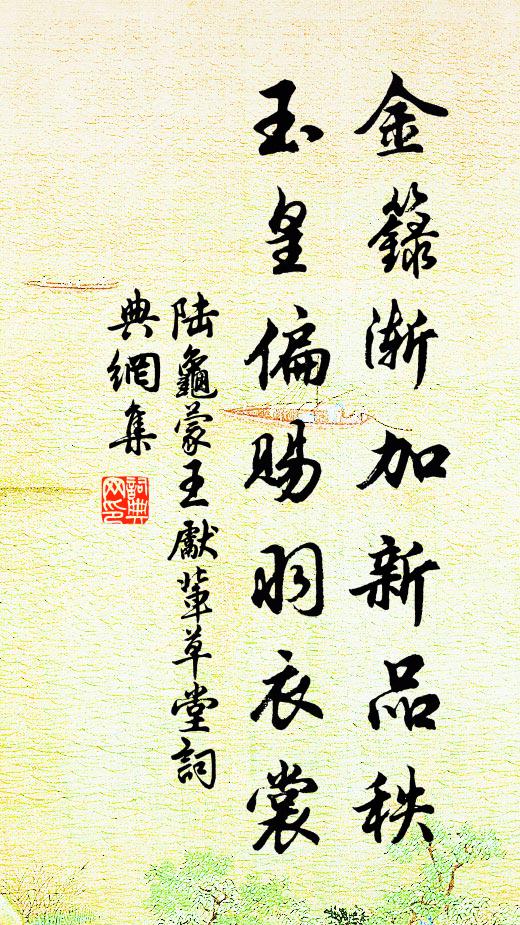 金籙漸加新品秩
玉皇偏賜羽衣裳
陸龜蒙王獻輩草堂詞
典網集
詞典网印